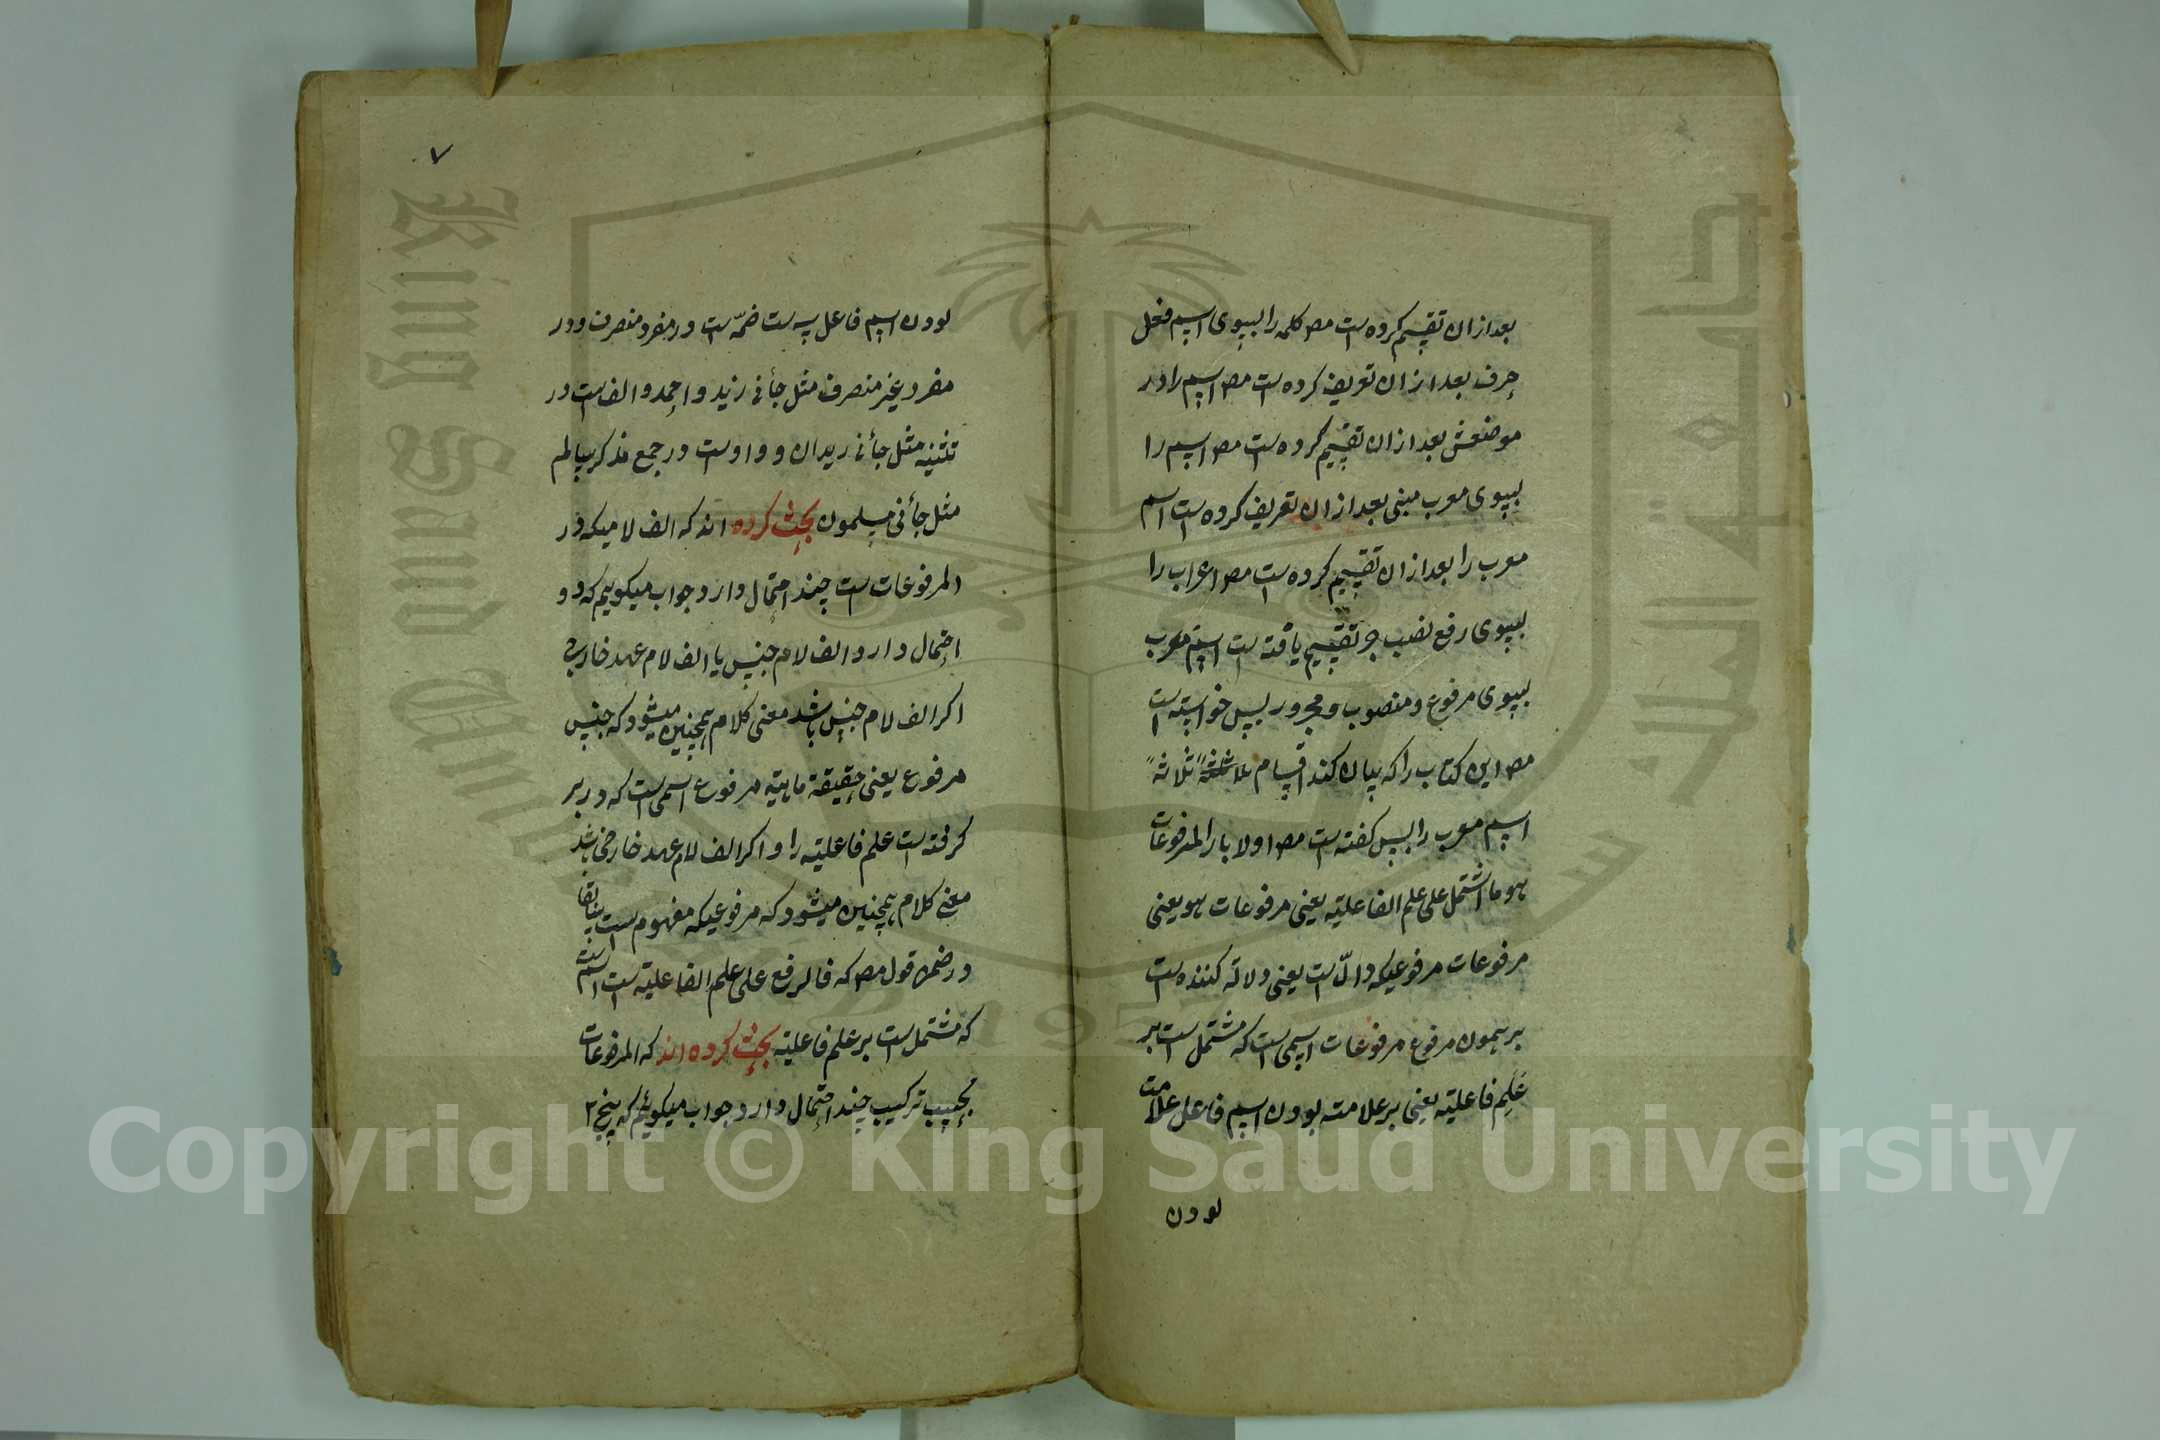 بعد ازان تقسیم کرده است مص کلمه را بسوی اسم فعل
حرف بعد ازان تعریف کرده است مص اسم را در
موضعش بعد ازان تقسیم کرده است مص اسم را
بسوی معرب مبنی بعد ازان تعریف کرده است اسم
معرب را بعد ازان تقسیم کرده است مص اعراب را
بسوی رفع نصب جر تقسیم یافته است اسم معرب
بسوی مرفوع و منصوب و مجرور پس خواسته است
مص این کتاب را که بیان کند اقسام ثلاثة
اسم معرب را پس کفته است مص اولا بار المرفوعات
هو ما اشتمل علی علم الفاعلیة یعنی مرفوعات هو یعنی
مرفوعات مرفوعیکه دالّ است یعنی دلاتة کننده است
بر همون مرفوع مرفوعات اسمی است که مشتمل است بر
علم فاعلیه یعنی بر علامته بودن اسم فاعل علامت
بودن
٧
بودن اسم فاعل سه است ضمّه است در مفرد منصرف و در
مفرد غیر منصرف مثل جأنی زید و احمد و الف است در
تثنیه مثل جأنی زیدان و واو است در جمع مذکر سالم
مثل جأنی مسلمون بحث کرده اند که الف لامیکه در
المرفوعات است چند احتمال دارد جواب میکوییم که دو
احتمال دارد الف لام جنس یا الف لام عهد خارجی
اکر الف لام جنس باشد معنی کلام همچنین میشود که جنس
مرفوع یعنی حقیقة ماهیة مرفوع اسمی است که در بر
کرفته است علم فاعلیة را و اکر الف لام عهد خارجی باشد
معنی کلام همچنین میشود که مرفوعیکه مفهوم است سابقا
در ضمن قول مص که فالرفع علی علم الفاعلیة است اسمیست
که مشتمل است بر علم فاعلیة بحث کرده اند که المرفوعات
بحسب ترکیب چند احتمال دارد جواب میکوییم که پنج ٢
King Saud University
جامعة الملك سعود
1957
Copyright © King Saud University